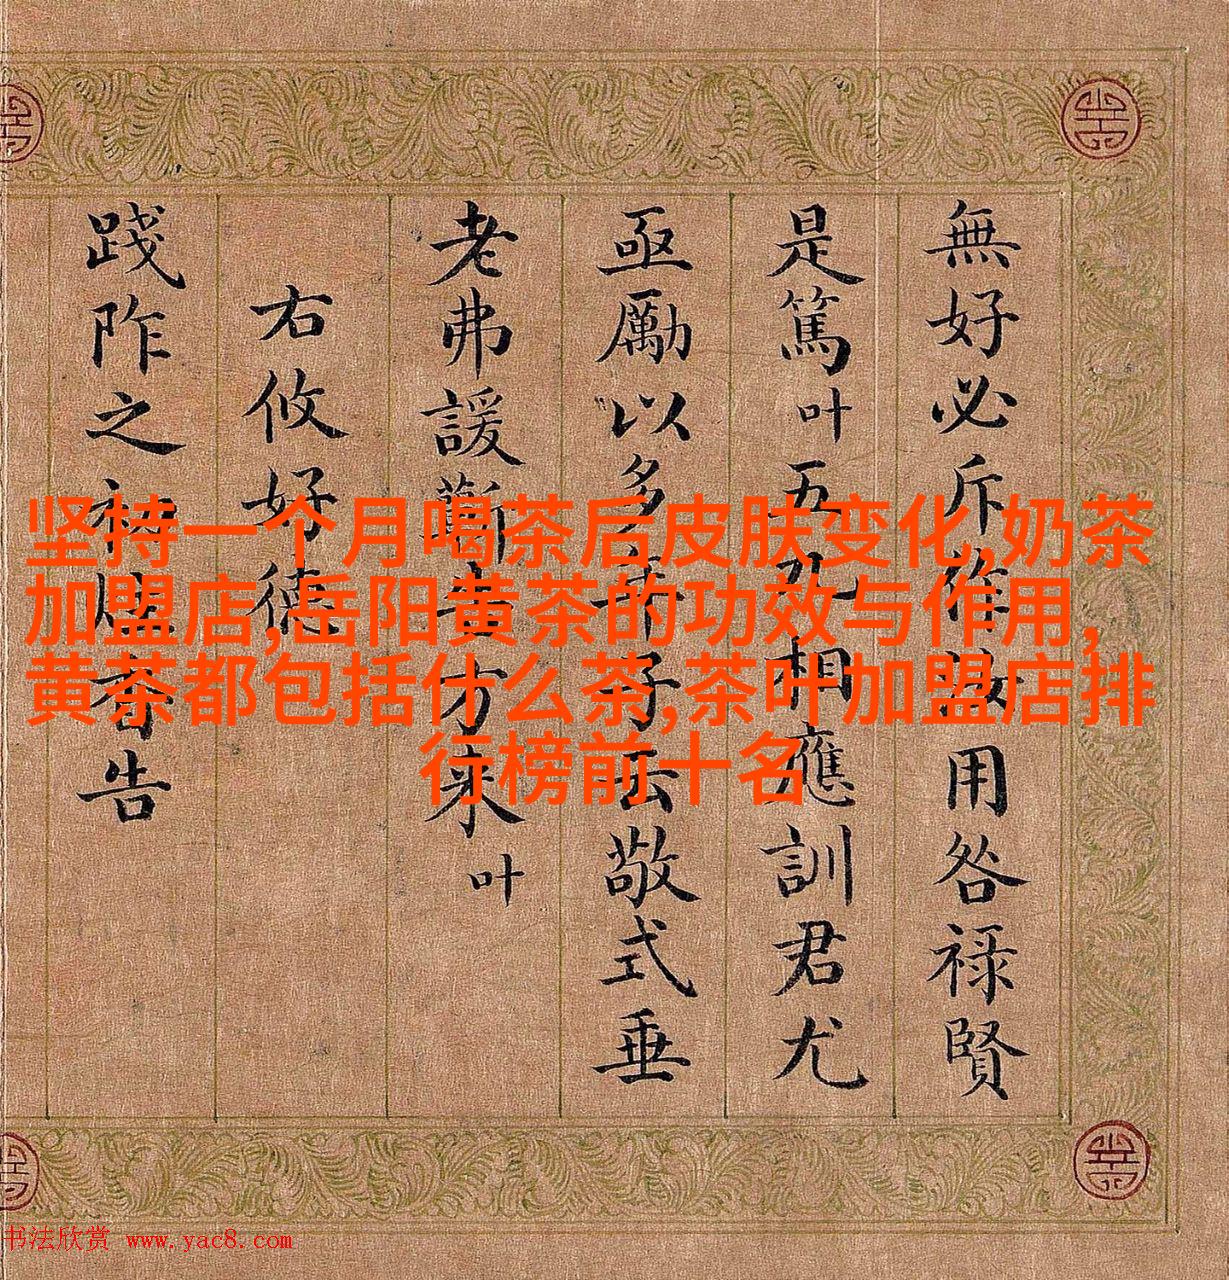 無好必斥作汝用咎禄賢
是篤叶五九相應訓君尤
亟勵以多子云敬式垂
老弗諼蘄方来叶
右攸好德
踐阼之初告
坚持一个月喝茶后皮肤变化,奶茶
加盟店,岳阳黄茶的功效与作用,
黄茶都包括什么茶,茶叶加盟店排
行榜前十名
书法欣赏 www.yac8.com